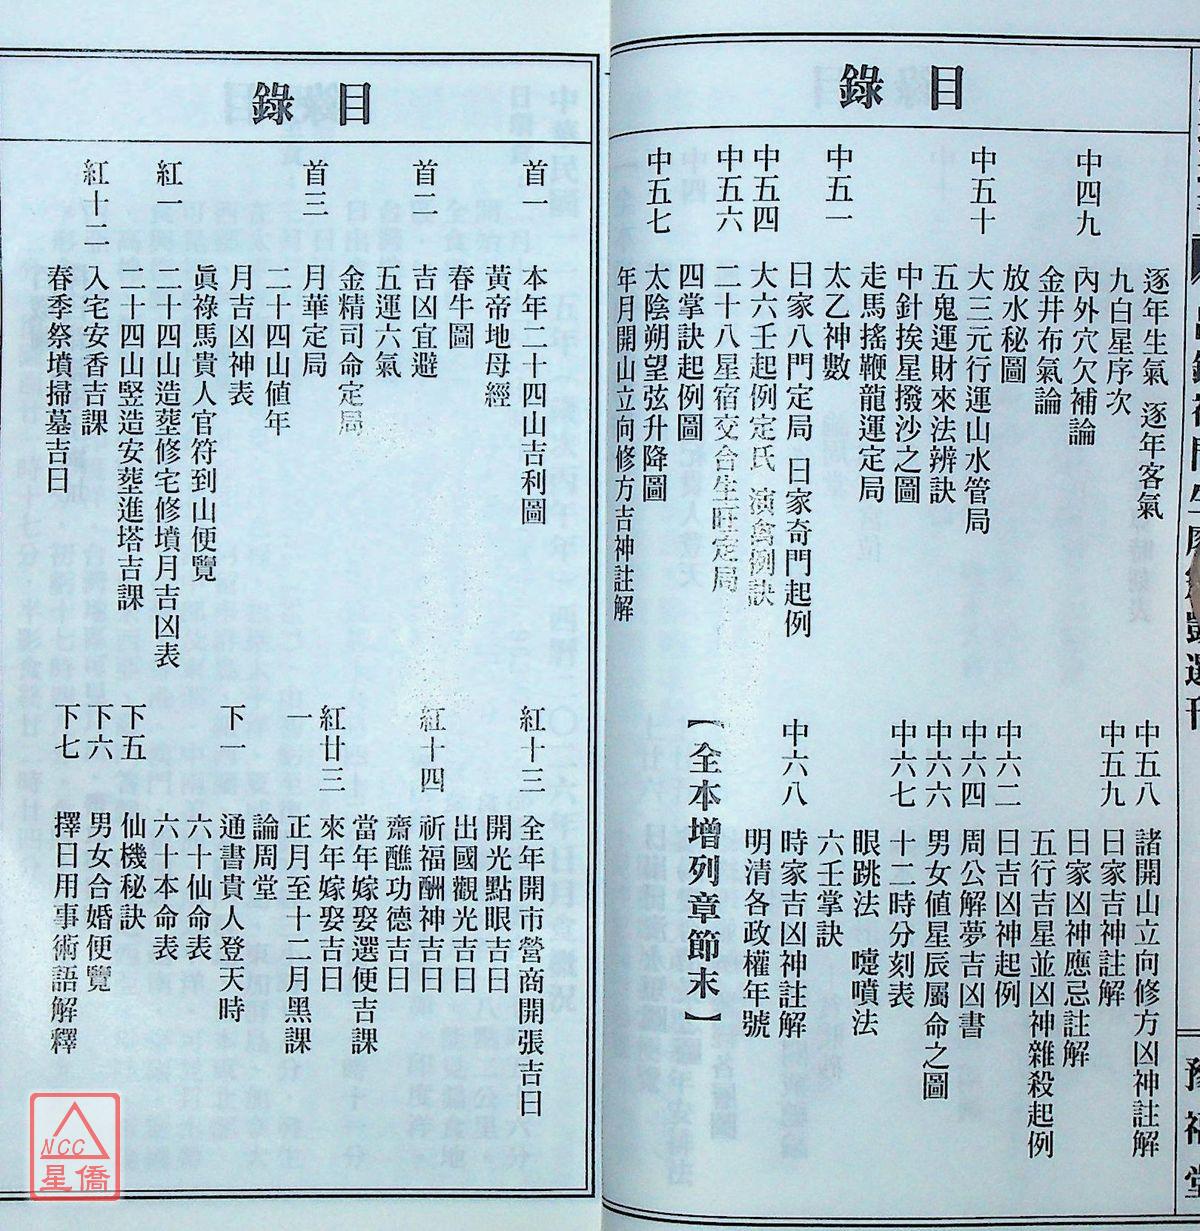 目錄
中四九
中五十
中五一
中五四
中五六
中五七
逐年生氣 逐年客氣
九白星序次
內外穴欠補論
金井布氣論
放水秘圖
大三元行運山水管局
五鬼運財來法辨訣
中針挨星撥沙之圖
走馬搖鞭龍運定局
太乙神數
日家八門定局 日家奇門起例
大六壬起例定氏 演禽例訣
二十八星宿交會生旺定局
四掌訣起例圖
太陰朔望弦升降圖
年月開山立向修方吉神註解
中五八
中五九
中六二
中六四
中六六
中六七
中六八
諸開山立向修方凶神註解
日家吉神註解
日家凶神應忌註解
五行吉星並凶神雜殺起例
日吉凶神起例
周公解夢吉凶書
男女值星辰屬命之圖
十二時分刻表
眼跳法 嚏噴法
六壬掌訣
時家吉凶神註解
明清各政權年號
【全本增列章節末】
豫福堂
目錄
首一
首二
首三
紅一
紅十二
本年二十四山吉利圖
黃帝地母經
春牛圖
吉凶宜避
五運六氣
金精司命定局
月華定局
二十四山值年
月吉凶神表
眞祿馬貴人官符到山便覽
二十四山造塟修宅修墳月吉凶表
二十四山豎造安塟進塔吉課
入宅安香吉課
春季祭墳掃墓吉日
紅十三
紅十四
紅廿三
一
下一
下五
下六
下七
全年開市營商開張吉日
開光點眼吉日
出國觀光吉日
祈福酬神吉日
齋醮功德吉日
當年嫁娶選便吉課
來年嫁娶吉日
正月至十二月黑課
論周堂
通書貴人登天時
六十仙命表
六十本命表
仙機秘訣
男女合婚便覽
擇日用事術語解釋
NCC
星僑